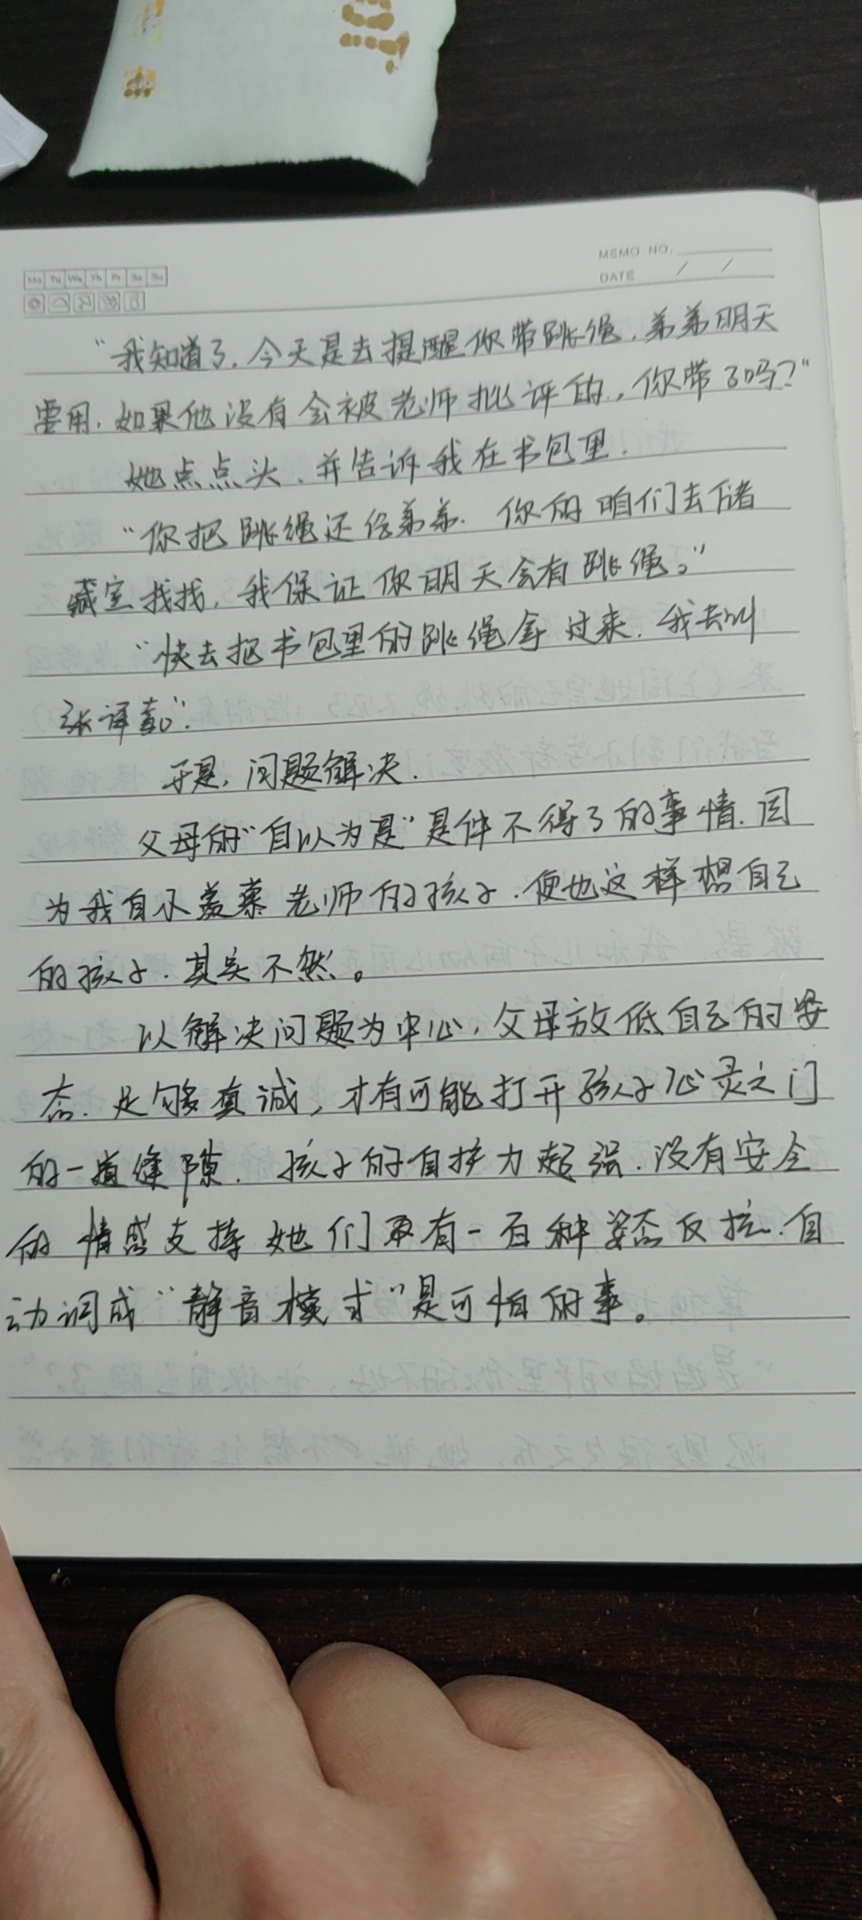 MEMO NO.
DATE / /
Mo Tu We Th Fr Sa Su
"我知道了,今天是去提醒你带跳绳,弟弟明天
要用,如果他没有会被老师批评的,你带了吗?"
她点点头,并告诉我在书包里.
"你把跳绳还给弟弟.你的咱们去储
藏室找找,我保证你明天会有跳绳。"
"快去把书包里的跳绳拿过来.我去叫
张译."
于是,问题解决.
父母的"自以为是"是件不得了的事情.因
为我自小羡慕老师的孩子.便也这样想自己
的孩子.其实不然。
以解决问题为中心,父母放低自己的姿
态.足够真诚,才有可能打开孩子心灵之门
的一道缝隙.孩子的自护力超强.没有安全
的情感支撑她们有一百种姿态反抗.自
动调成"静音模式"是可怕的事。